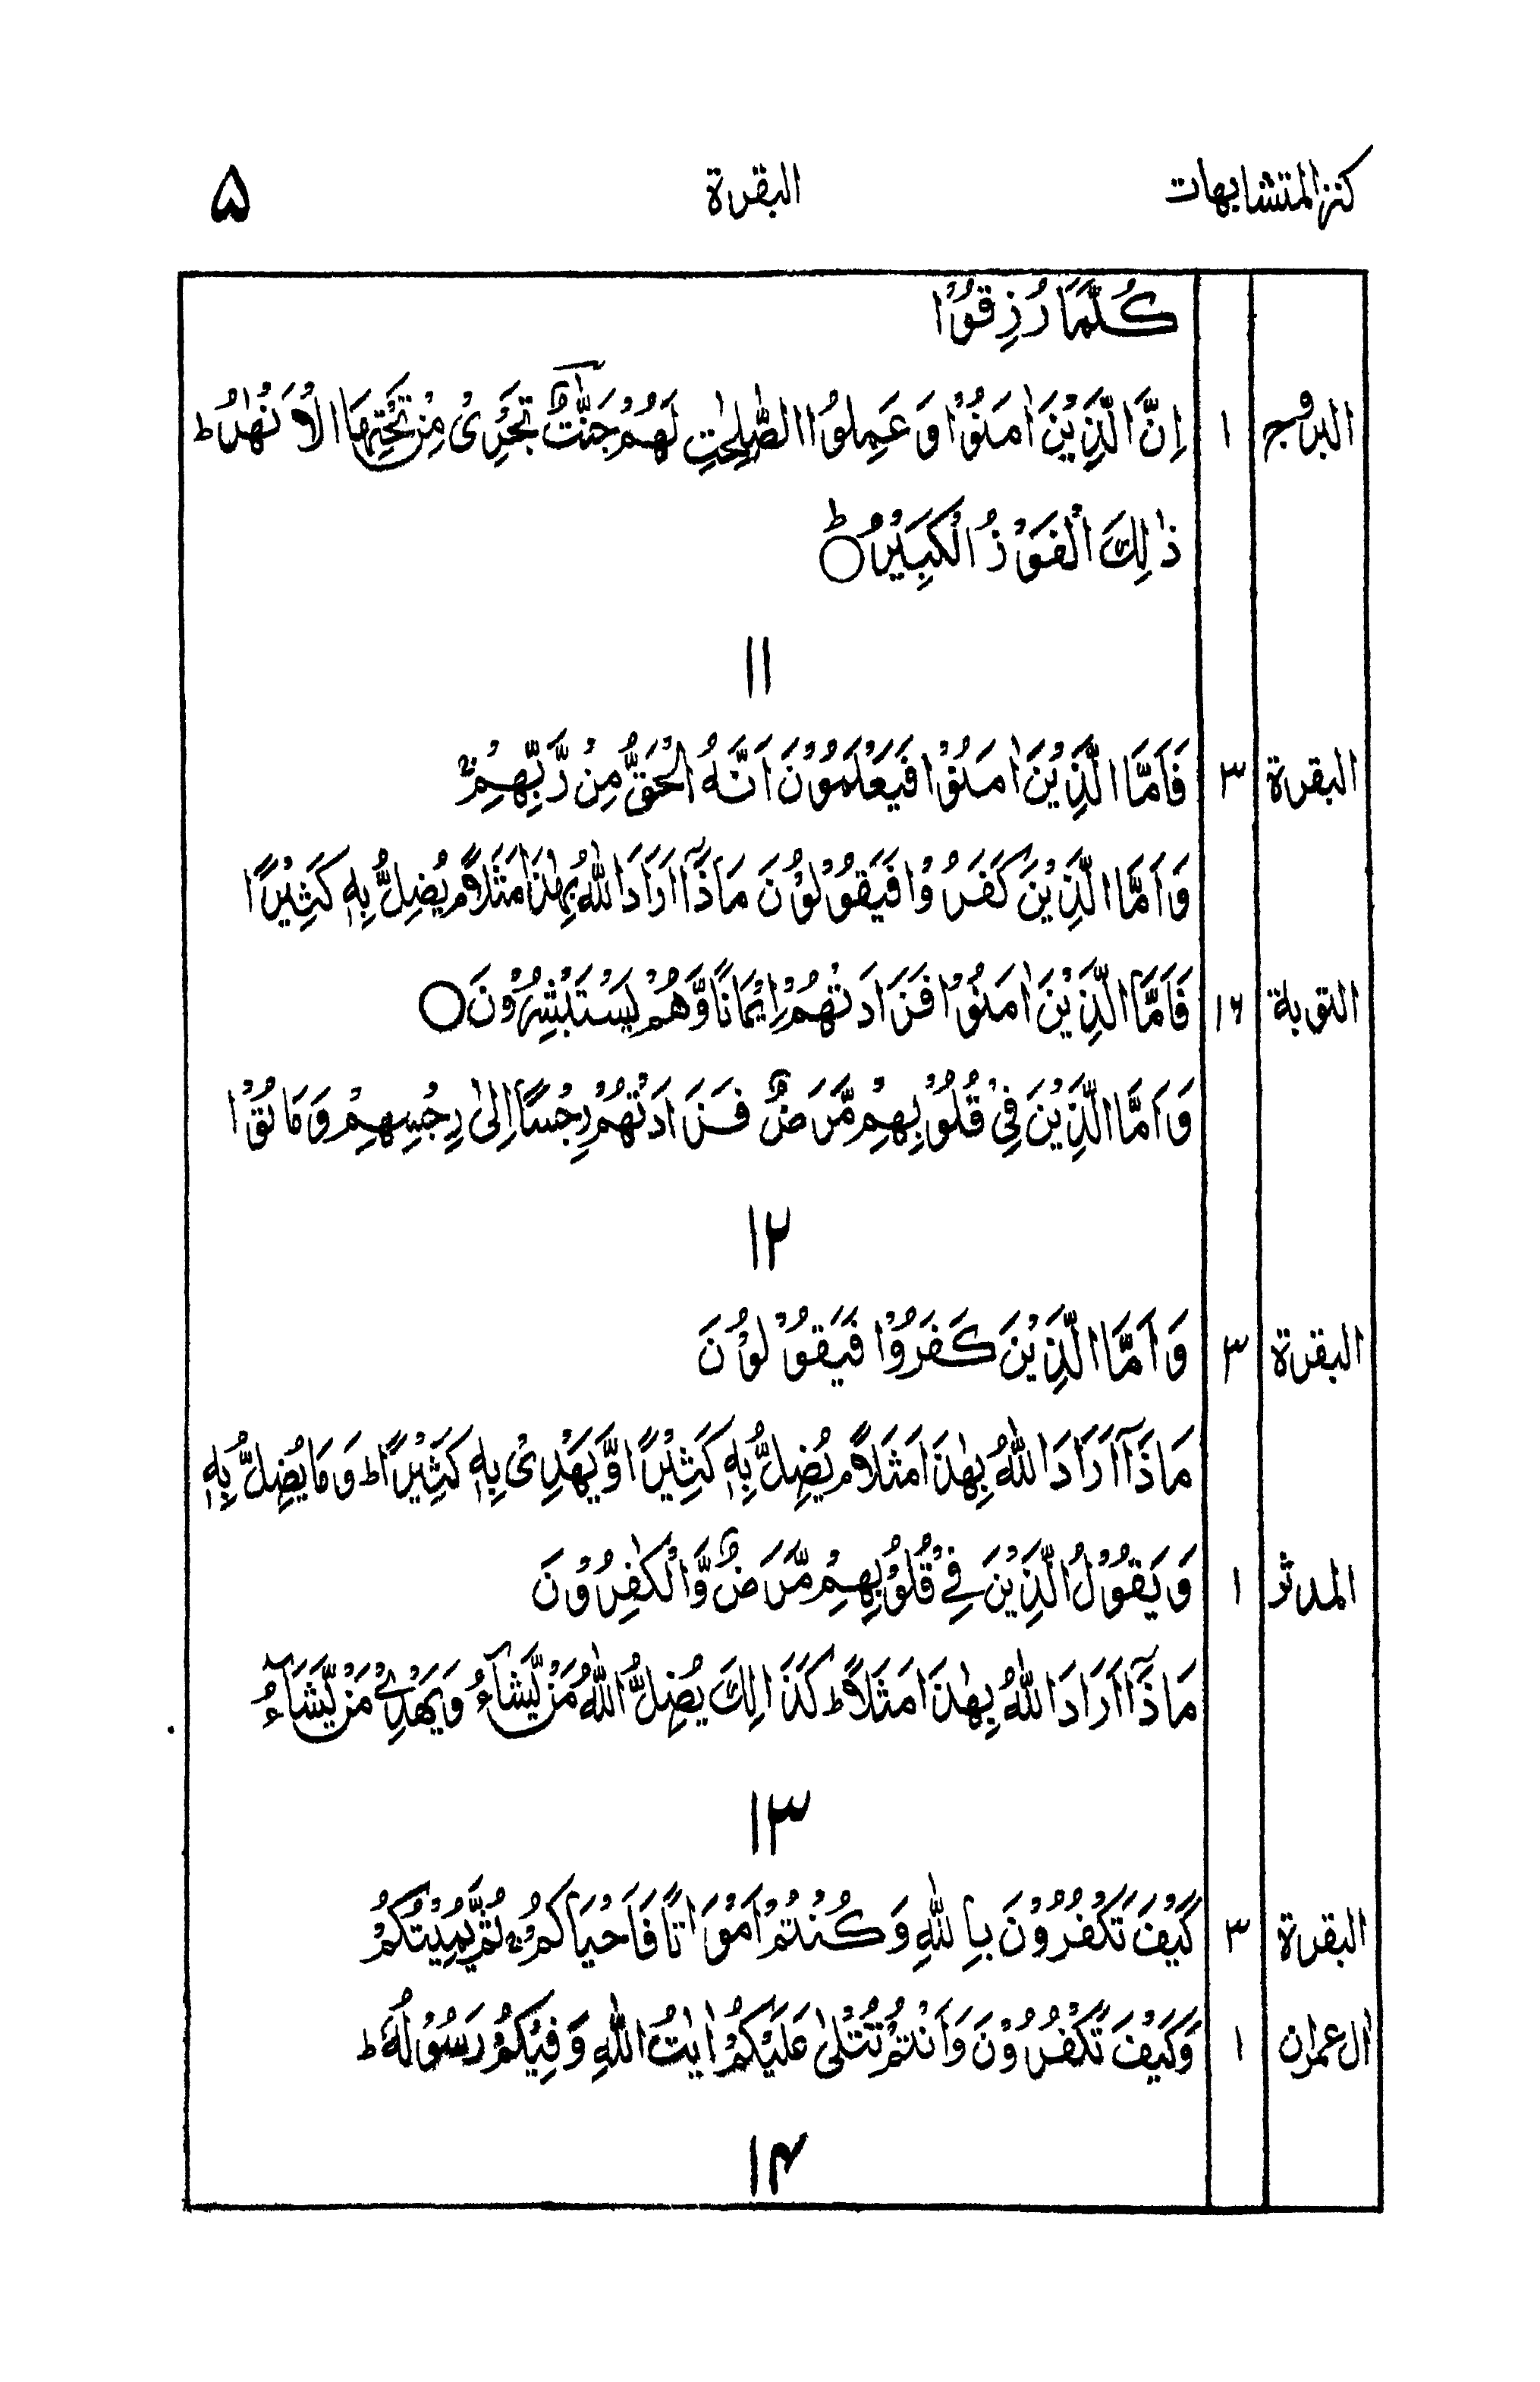 كنز المتشابهات البقرة ۵
كُلَّمَا رُزِقُوْا
البروج ١ اِنَّ الَّذِيْنَ اٰمَنُوْا وَعَمِلُوا الصّٰلِحٰتِ لَهُمْ جَنّٰتٌ تَجْرِىْ مِنْ تَحْتِهَا الْاَنْهٰرُ ؕ
ذٰلِكَ الْفَوْزُ الْكَبِيْرُ ؕ○
١١
البقرة ٣ فَاَمَّا الَّذِيْنَ اٰمَنُوْا فَيَعْلَمُوْنَ اَنَّهُ الْحَقُّ مِنْ رَّبِّهِمْ ۚ
وَاَمَّا الَّذِيْنَ كَفَرُوْا فَيَقُوْلُوْنَ مَاذَآ اَرَادَ اللّٰهُ بِهٰذَا مَثَلًا ۘ يُضِلُّ بِهٖ كَثِيْرًا
التوبة ١٦ فَاَمَّا الَّذِيْنَ اٰمَنُوْا فَزَادَتْهُمْ اِيْمَانًا وَّهُمْ يَسْتَبْشِرُوْنَ○
وَاَمَّا الَّذِيْنَ فِىْ قُلُوْبِهِمْ مَّرَضٌ فَزَادَتْهُمْ رِجْسًا اِلٰى رِجْسِهِمْ وَمَاتُوْا
١٢
البقرة ٣ وَاَمَّا الَّذِيْنَ كَفَرُوْا فَيَقُوْلُوْنَ
مَاذَآ اَرَادَ اللّٰهُ بِهٰذَا مَثَلًا ۘ يُضِلُّ بِهٖ كَثِيْرًا وَّيَهْدِىْ بِهٖ كَثِيْرًا ؕ وَمَا يُضِلُّ بِهٖ
المدثر ١ وَيَقُوْلُ الَّذِيْنَ فِىْ قُلُوْبِهِمْ مَّرَضٌ وَّالْكٰفِرُوْنَ
مَاذَآ اَرَادَ اللّٰهُ بِهٰذَا مَثَلًا ؕ كَذَالِكَ يُضِلُّ اللّٰهُ مَنْ يَّشَآءُ وَيَهْدِىْ مَنْ يَّشَآءُ
١٣
البقرة ٣ كَيْفَ تَكْفُرُوْنَ بِاللّٰهِ وَكُنْتُمْ اَمْوَاتًا فَاَحْيَاكُمْ ۚ ثُمَّ يُمِيْتُكُمْ
اٰل عمران ١ وَكَيْفَ تَكْفُرُوْنَ وَاَنْتُمْ تُتْلٰى عَلَيْكُمْ اٰيٰتُ اللّٰهِ وَفِيْكُمْ رَسُوْلُهٗ ؕ
١۴